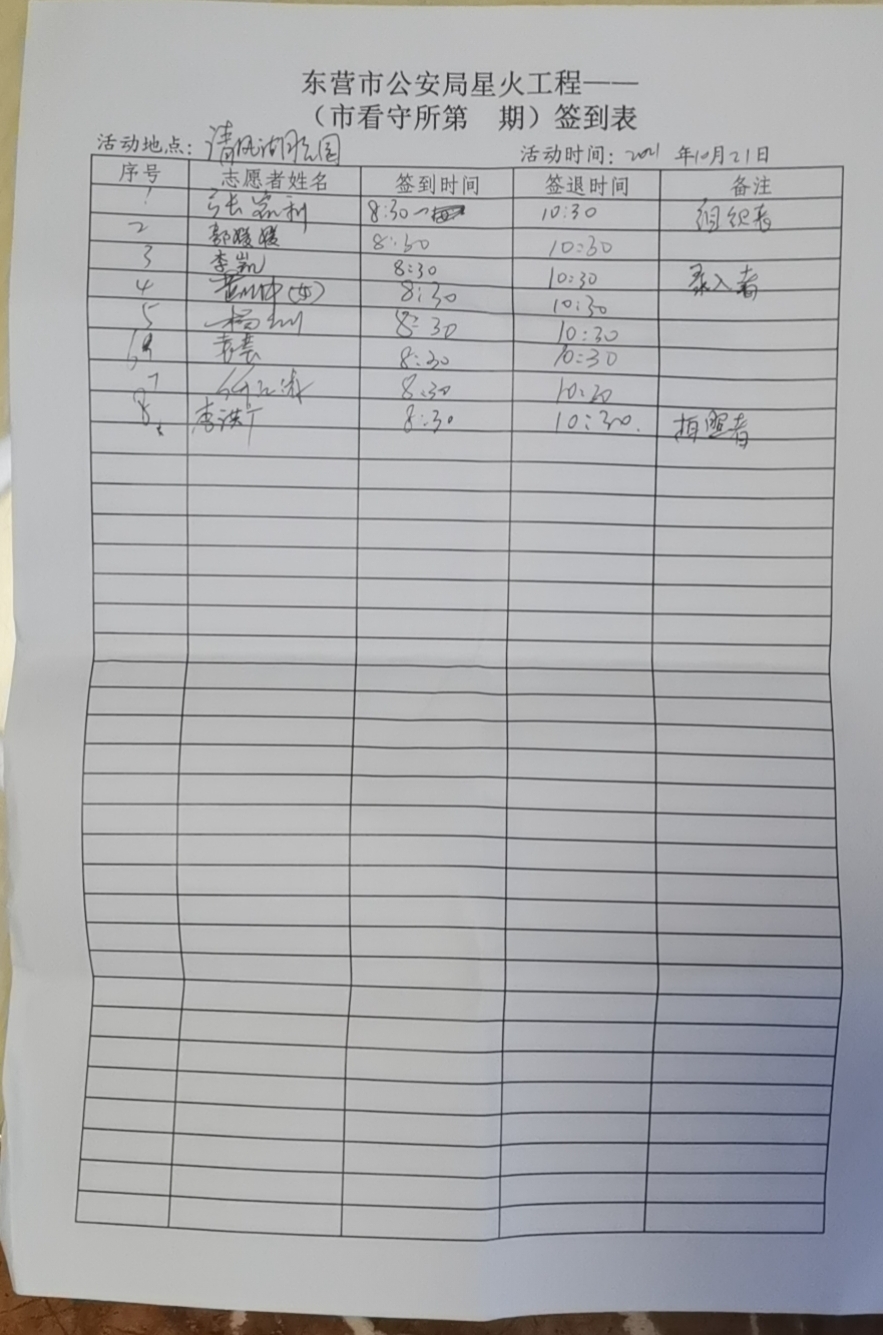 东营市公安局星火工程——
（市看守所第 期）签到表
活动地点：清风湖公园 活动时间：2021 年10月21日
序号 志愿者姓名 签到时间 签退时间 备注
1 张宗利 8:30 10:30 组织者
2 郭媛媛 8:30 10:30
3 李凯 8:30 10:30 录入者
4 (女) 8:30 10:30
5 8:30 10:30
6 袁袁 8:30 10:30
7 8:30 10:30
8 李洪广 8:30 10:30. 拍照者